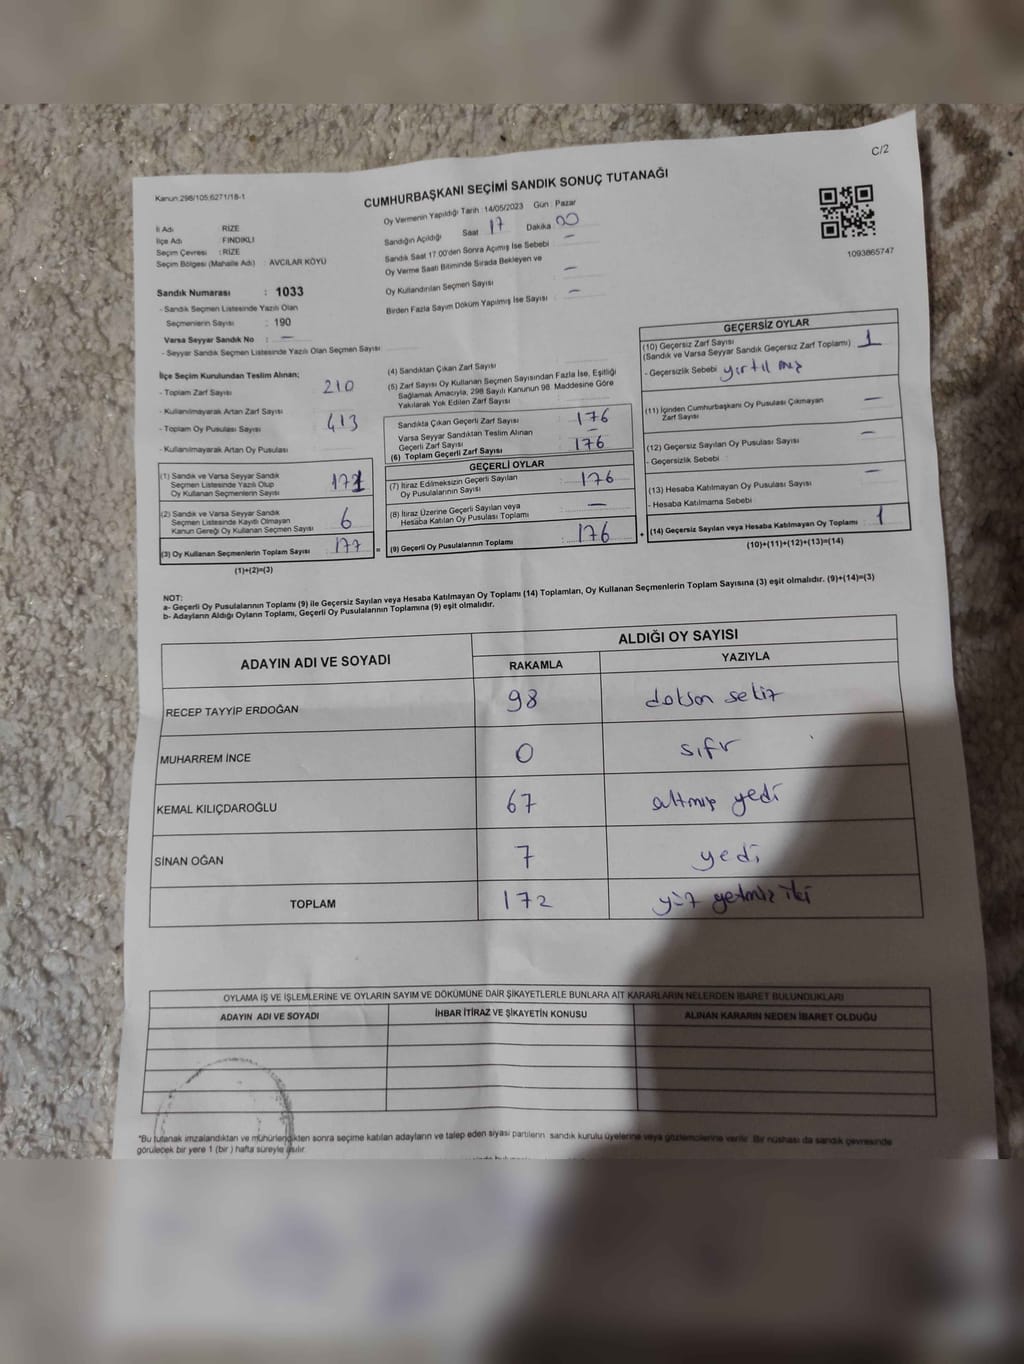 C/2
Kanun:298/105;6271/18-1
CUMHURBAŞKANI SEÇİMİ SANDIK SONUÇ TUTANAĞI
Oy Vermenin Yapıldığı Tarih :14/05/2023 Gün : Pazar
İl Adı : RİZE
İlçe Adı : FINDIKLI
Seçim Çevresi : RİZE
Seçim Bölgesi (Mahalle Adı) : AVCILAR KÖYÜ
Sandığın Açıldığı Saat 17 Dakika 00
Sandık Saat 17.00'den Sonra Açılmış İse Sebebi –
Oy Verme Saati Bitiminde Sırada Bekleyen ve
Oy Kullandırılan Seçmen Sayısı –
Birden Fazla Sayım Döküm Yapılmış İse Sayısı –
1093865747
Sandık Numarası : 1033
- Sandık Seçmen Listesinde Yazılı Olan
Seçmenlerin Sayısı : 190
Varsa Seyyar Sandık No : –
- Seyyar Sandık Seçmen Listesinde Yazılı Olan Seçmen Sayısı
İlçe Seçim Kurulundan Teslim Alınan;
- Toplam Zarf Sayısı 210
- Kullanılmayarak Artan Zarf Sayısı
- Toplam Oy Pusulası Sayısı 413
- Kullanılmayarak Artan Oy Pusulası
(1) Sandık ve Varsa Seyyar Sandık
Seçmen Listesinde Yazılı Olup
Oy Kullanan Seçmenlerin Sayısı 171
(2) Sandık ve Varsa Seyyar Sandık
Seçmen Listesinde Kayıtlı Olmayan
Kanun Gereği Oy Kullanan Seçmen Sayısı 6
(3) Oy Kullanan Seçmenlerin Toplam Sayısı : 177 =
(1)+(2)=(3)
(4) Sandıktan Çıkan Zarf Sayısı
(5) Zarf Sayısı Oy Kullanan Seçmen Sayısından Fazla İse, Eşitliği
Sağlamak Amacıyla, 298 Sayılı Kanunun 98. Maddesine Göre
Yakılarak Yok Edilen Zarf Sayısı
Sandıkta Çıkan Geçerli Zarf Sayısı : 176
Varsa Seyyar Sandıktan Teslim Alınan
Geçerli Zarf Sayısı –
(6) Toplam Geçerli Zarf Sayısı 176
GEÇERLİ OYLAR
(7) İtiraz Edilmeksizin Geçerli Sayılan
Oy Pusulalarının Sayısı : 176
(8) İtiraz Üzerine Geçerli Sayılan veya
Hesaba Katılan Oy Pusulası Toplamı –
(9) Geçerli Oy Pusulalarının Toplamı : 176 +
GEÇERSİZ OYLAR
(10) Geçersiz Zarf Sayısı
(Sandık ve Varsa Seyyar Sandık Geçersiz Zarf Toplamı) 1
- Geçersizlik Sebebi yırtılmız
(11) İçinden Cumhurbaşkanı Oy Pusulası Çıkmayan
Zarf Sayısı –
(12) Geçersiz Sayılan Oy Pusulası Sayısı –
- Geçersizlik Sebebi :
(13) Hesaba Katılmayan Oy Pusulası Sayısı –
- Hesaba Katılmama Sebebi
(14) Geçersiz Sayılan veya Hesaba Katılmayan Oy Toplamı : 1
(10)+(11)+(12)+(13)=(14)
NOT:
a- Geçerli Oy Pusulalarının Toplamı (9) ile Geçersiz Sayılan veya Hesaba Katılmayan Oy Toplamı (14) Toplamları, Oy Kullanan Seçmenlerin Toplam Sayısına (3) eşit olmalıdır. (9)+(14)=(3)
b- Adayların Aldığı Oyların Toplamı, Geçerli Oy Pusulalarının Toplamına (9) eşit olmalıdır.
ADAYIN ADI VE SOYADI
ALDIĞI OY SAYISI
RAKAMLA YAZIYLA
RECEP TAYYİP ERDOĞAN 98 doksan sekiz
MUHARREM İNCE 0 sıfır
KEMAL KILIÇDAROĞLU 67 altmış yedi
SİNAN OĞAN 7 yedi
TOPLAM 172 yüz yetmiz iki
OYLAMA İŞ VE İŞLEMLERİNE VE OYLARIN SAYIM VE DÖKÜMÜNE DAİR ŞİKAYETLERLE BUNLARA AİT KARARLARIN NELERDEN İBARET BULUNDUKLARI
ADAYIN ADI VE SOYADI İHBAR İTİRAZ VE ŞİKAYETİN KONUSU ALINAN KARARIN NEDEN İBARET OLDUĞU
*Bu tutanak imzalandıktan ve mühürlendikten sonra seçime katılan adayların ve talep eden siyasi partilerin sandık kurulu üyelerine veya gözlemcilerine verilir. Bir nüshası da sandık çevresinde
görülecek bir yere 1 (bir ) hafta süreyle asılır.